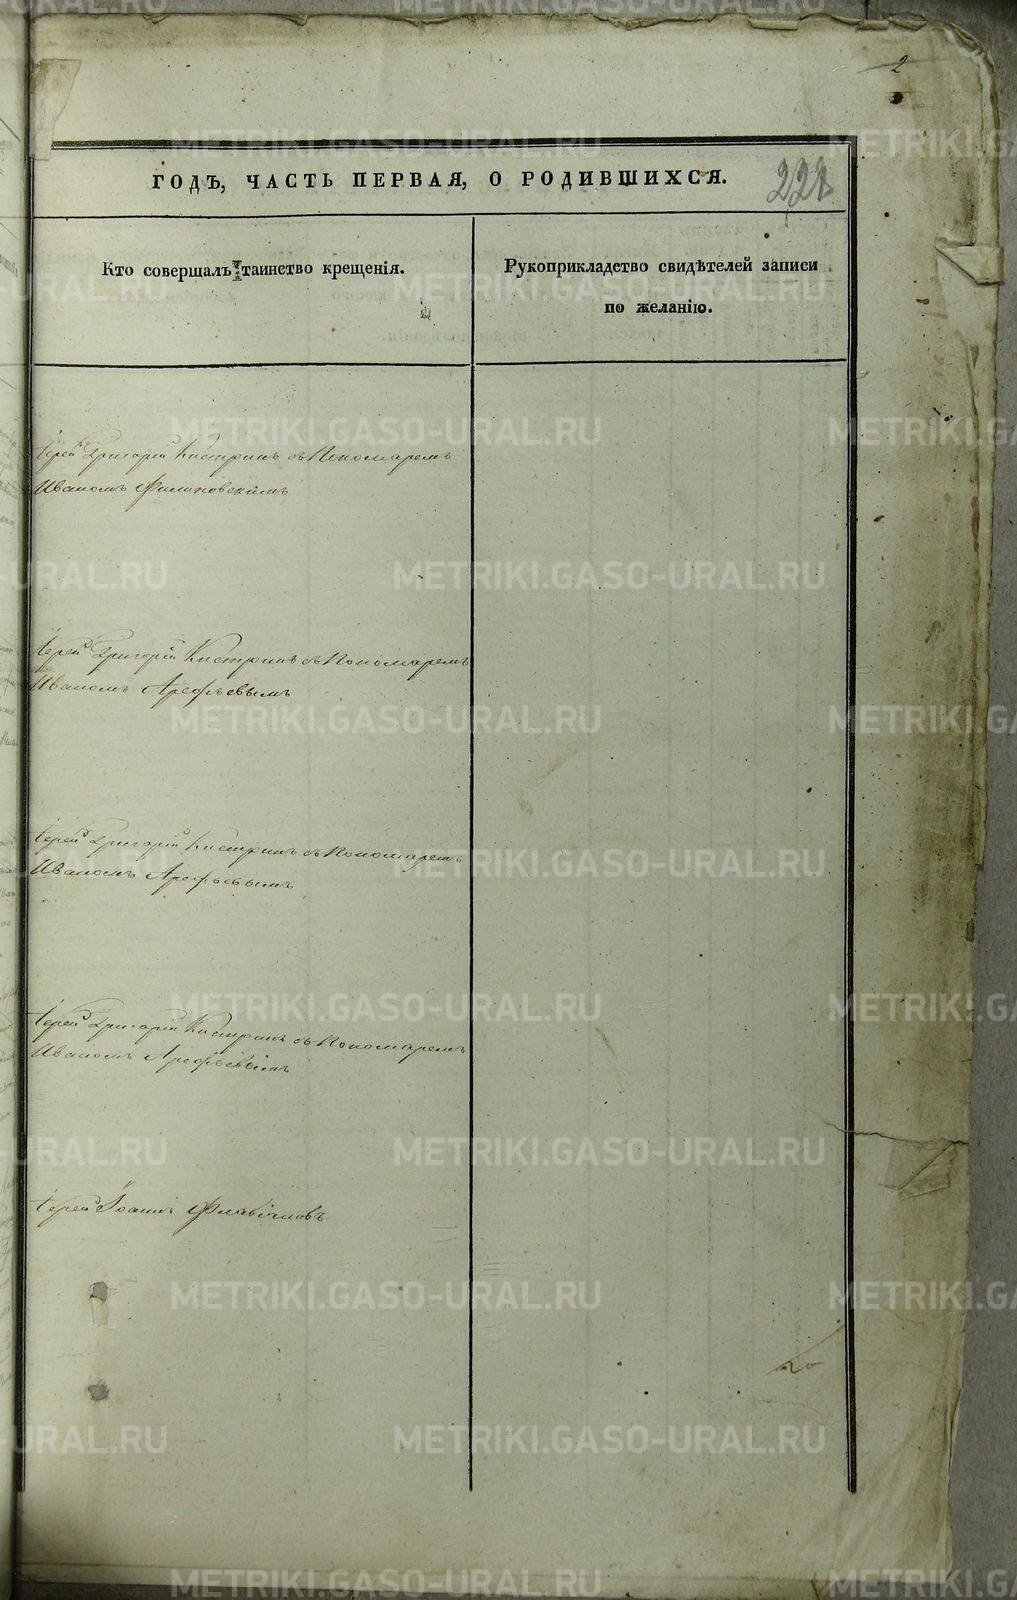 2
ГОДЪ, ЧАСТЬ ПЕРВАЯ, О РОДИВШИХСЯ.
Кто совершалъ таинство крещенія.
Рукоприкладство свидѣтелей записи
по желанію.
Іерей Григорій Кастринъ съ Пономаремъ
Иваномъ
Іерей Григорій Кастринъ съ Пономаремъ
Иваномъ Арефьевымъ
Іерей Григорій Кастринъ съ Пономаремъ
Иваномъ Арефьевымъ
Іерей Григорій Кастринъ съ Пономаремъ
Иваномъ Арефьевымъ
Іерей Іоаннъ Флавіановъ
METRIKI.GASO-URAL.RU